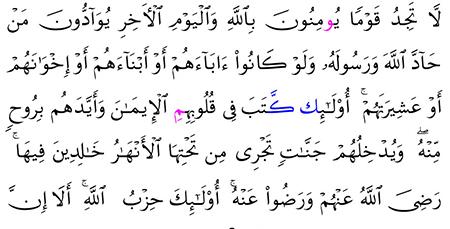 لَّا تَجِدُ قَوۡمٗا يُومِنُونَ بِٱللَّهِ وَٱلۡيَوۡمِ ٱلۡأٓخِرِ يُوَآدُّونَ مَنۡ
حَآدَّ ٱللَّهَ وَرَسُولَهُۥ وَلَوۡ كَانُوٓاْ ءَابَآءَهُمۡ أَوۡ أَبۡنَآءَهُمۡ أَوۡ إِخۡوَٰنَهُمۡ
أَوۡ عَشِيرَتَهُمۡۚ أُوْلَٰٓئِك كَّتَبَ فِي قُلُوبِهِمِ ٱلۡإِيمَٰنَ وَأَيَّدَهُم بِرُوحٖ
مِّنۡهُۖ وَيُدۡخِلُهُمۡ جَنَّٰتٖ تَجۡرِي مِن تَحۡتِهَا ٱلۡأَنۡهَٰرُ خَٰلِدِينَ فِيهَاۚ
رَضِيَ ٱللَّهُ عَنۡهُمۡ وَرَضُواْ عَنۡهُۚ أُوْلَٰٓئِكَ حِزۡبُ ٱللَّهِۚ أَلَآ إِنَّ